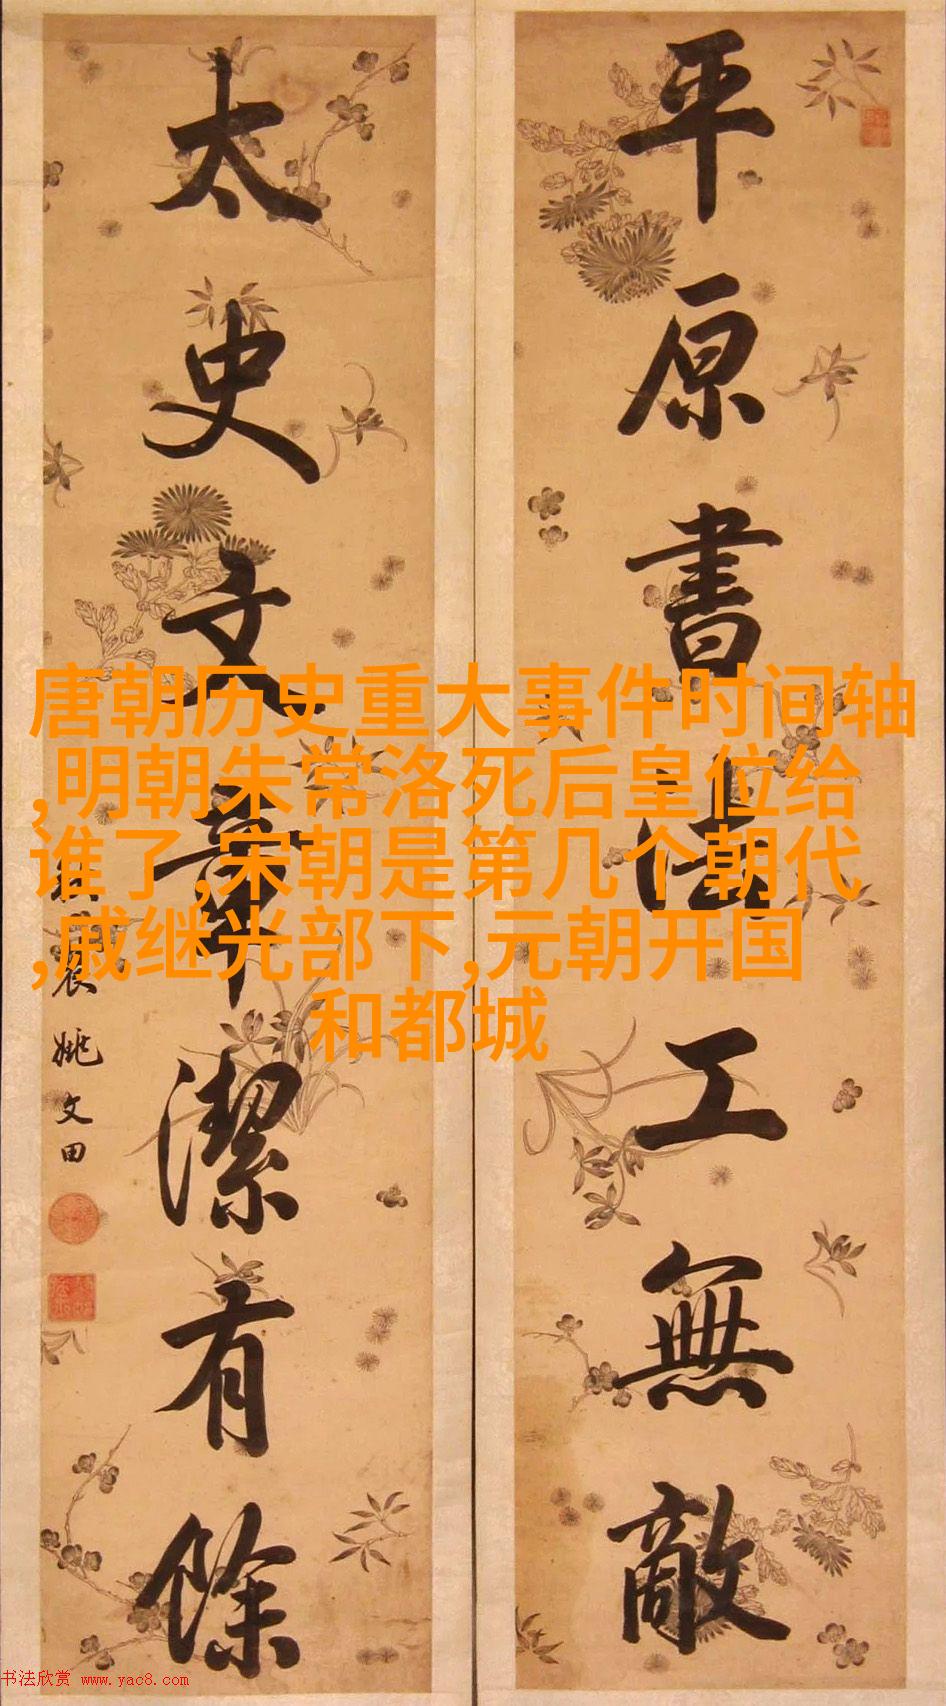 平原書法工無敵
太史文章潔有餘
姚文田
唐朝历史重大事件时间轴
,明朝朱常洛死后皇位给
谁了,宋朝是第几个朝代
,戚继光部下,元朝开国
和都城
书法欣赏 www.yac8.com